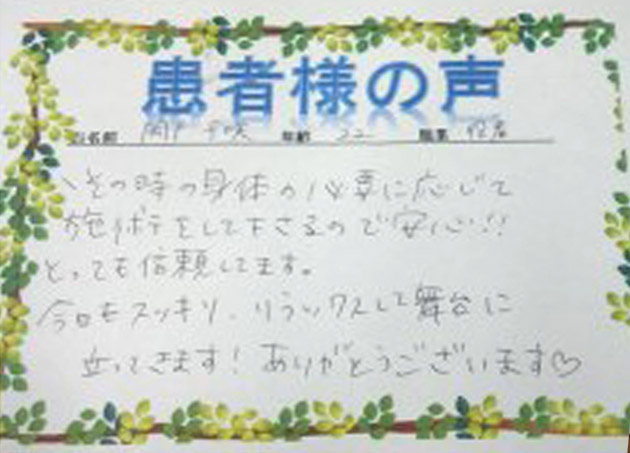 患者様の声
お名前 年齢 22 職業 役者
その時の身体の必要に応じて
施術をして下さるので安心!!
とっても信頼してます。
今日もスッキリ、リラックスして舞台に
立ってきます!ありがとうございます♡